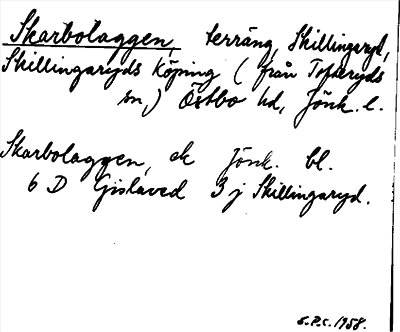 Skarbolaggen, terräng, Skillingaryd,
Skillingaryds köping (från Tofteryds
sn,) Östbo hd, Jönk. l.
Skarbolaggen, ek Jönk. bl.
6 D Gislaved 3 j Skillingaryd.
S.P.C. 1958.